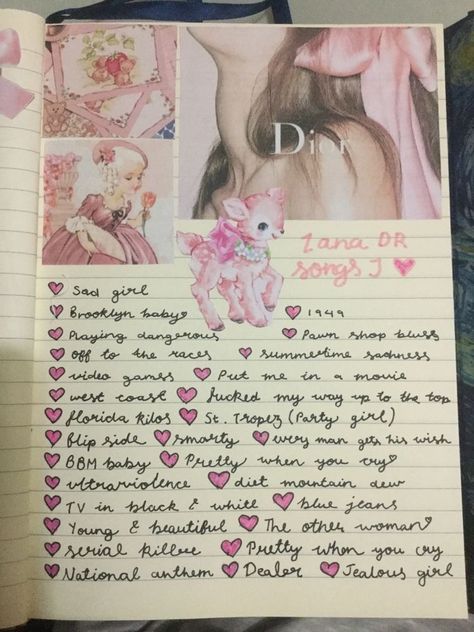 Dior
Lana DR
songs J
Sad girl
Brooklyn baby 1949
Playing dangerous Pawn shop bluss
off to the races summertime sadness
video games Put me in a movie
west coast fucked my way up to the top
florida kilos St. Tropez (Party girl)
flip side smarty every man gets his wish
BBM baby Pretty when you cry
ultraviolence diet mountain dew
TV in black & white blue jeans
Young & beautiful The other woman
serial killer Pretty when you cry
National anthem Dealer Jealous girl